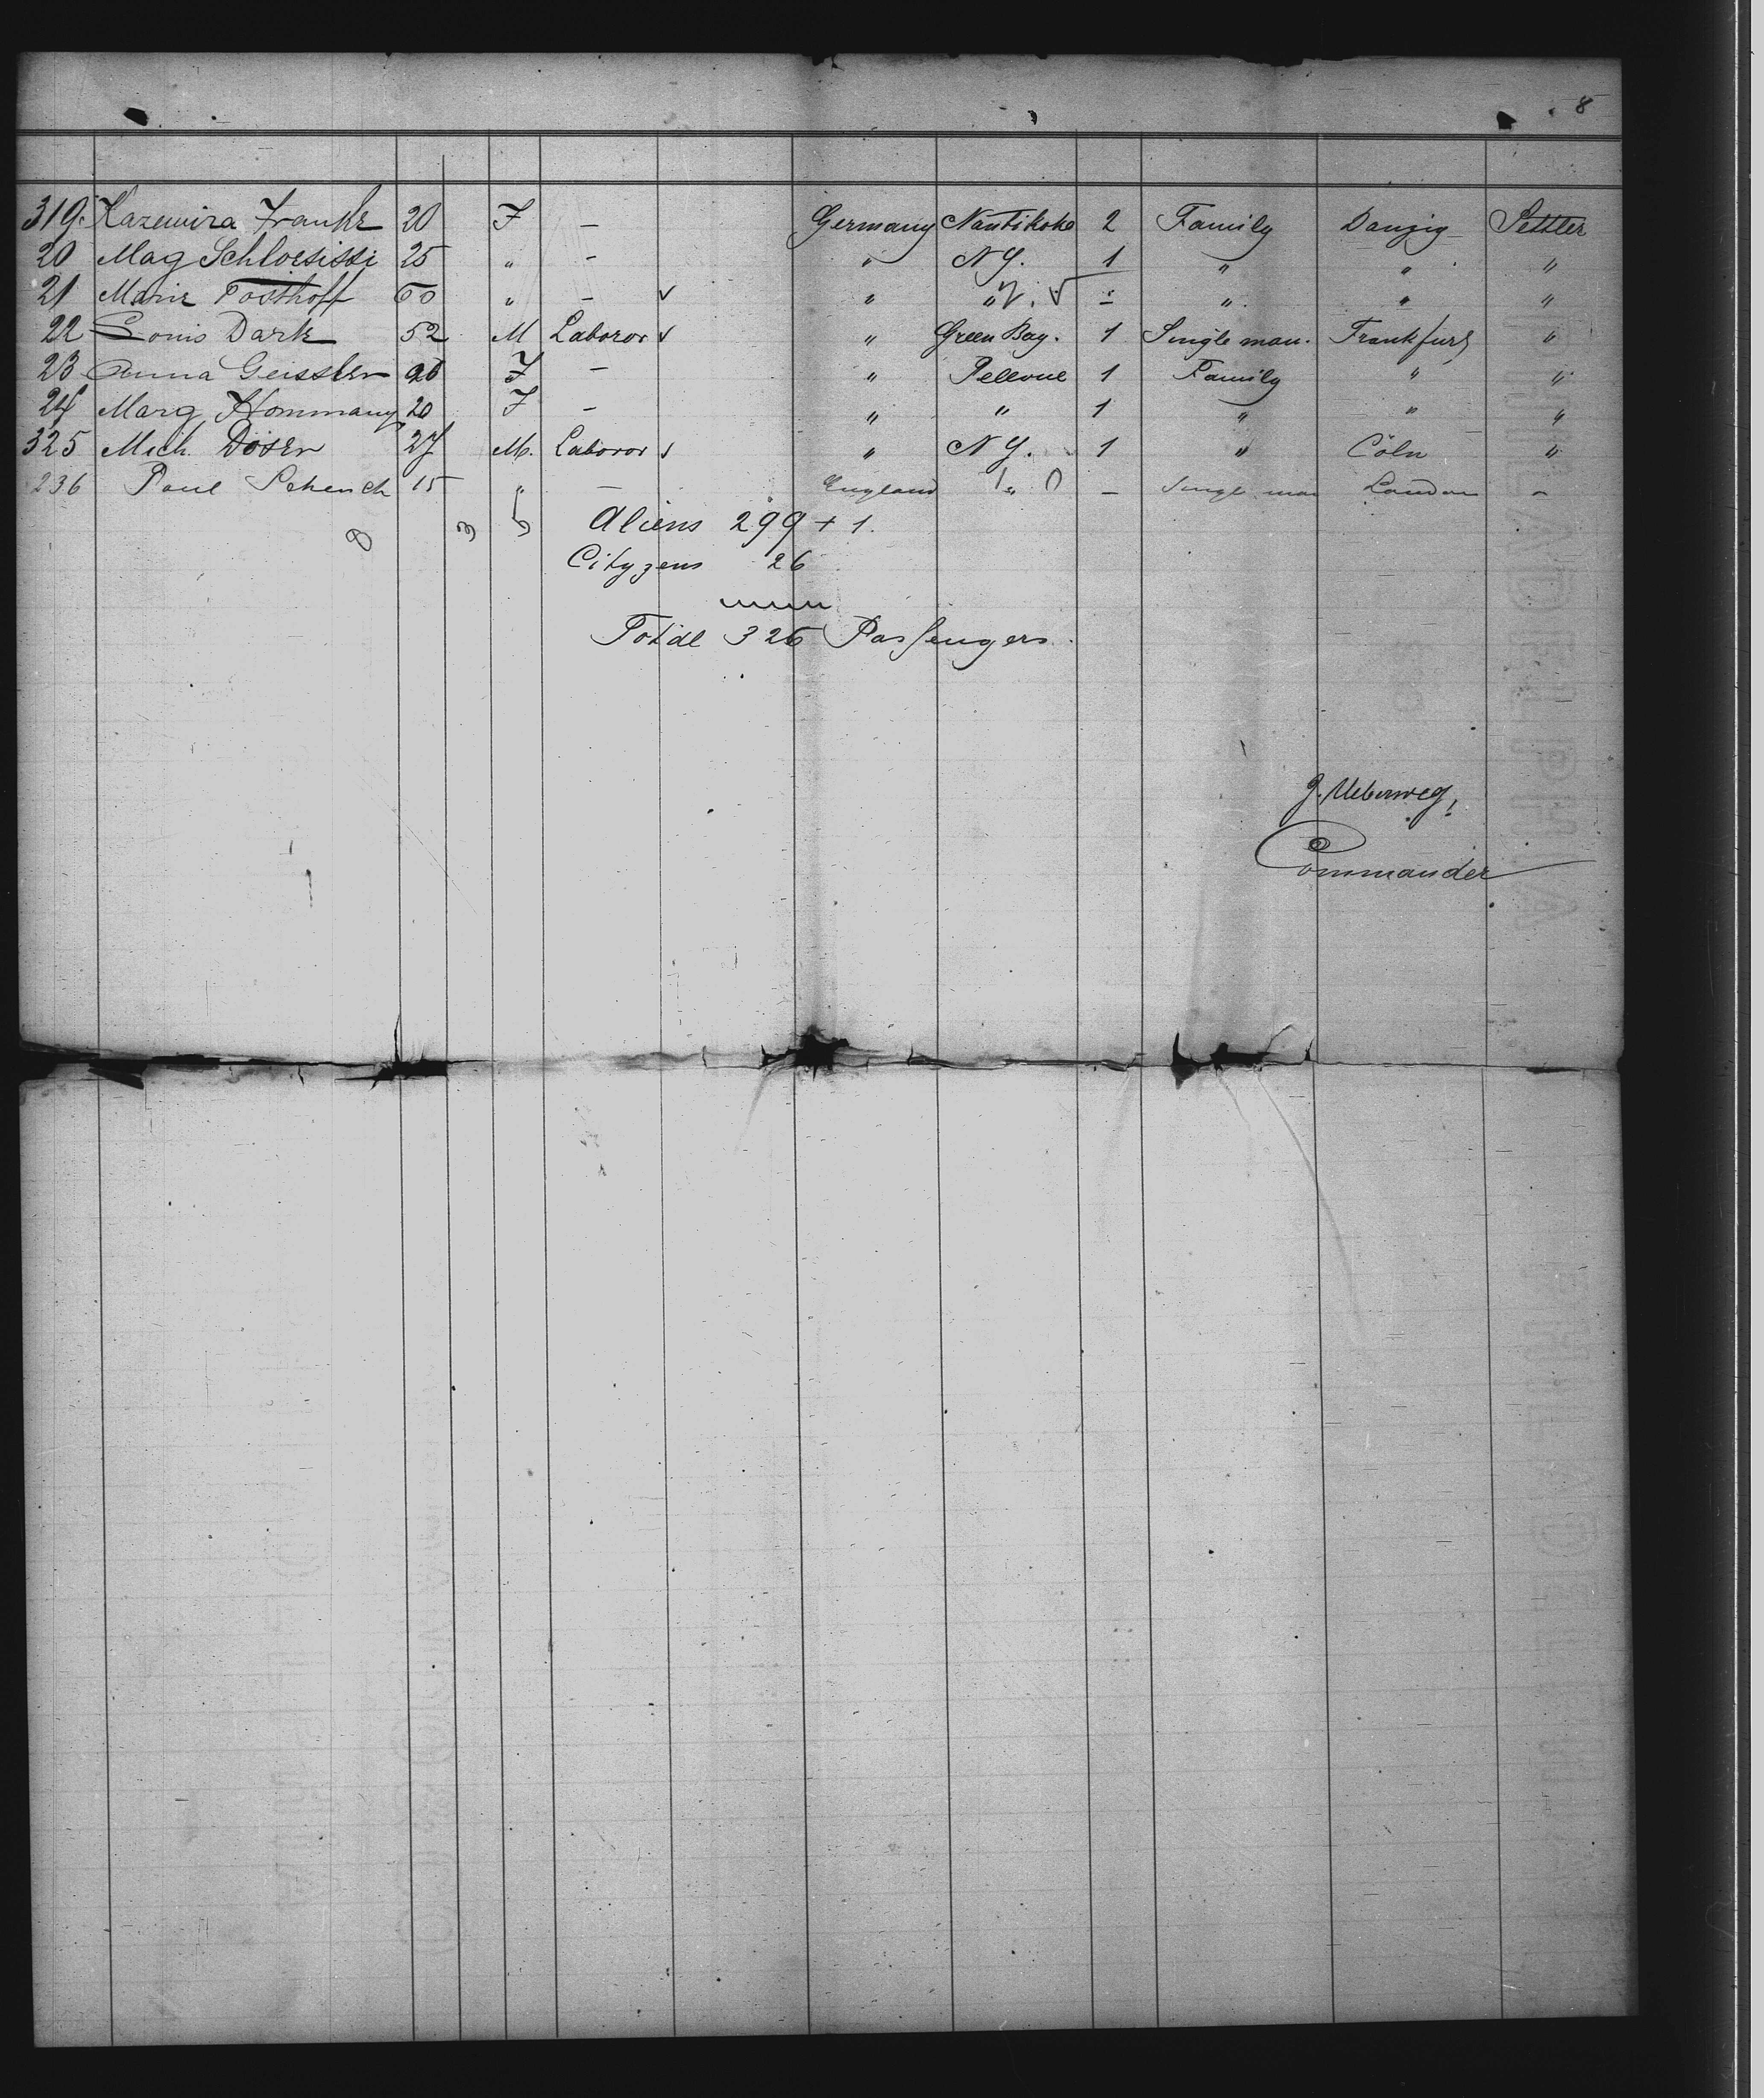 8
319. Kazemira Franke 20 F — Germany Nantikoke 2 Family Danzig Settler
20 Mag Schloesissi 25 " — " N Y. 1 " " "
21 Marie Posthoff 60 " — ✓ " " — " " "
22 Louis Dark 52 M Laboror ✓ " Green Bay. 1 Single man. Frankfurt "
23 Anna Geissler 26 F — " Pellevue 1 Family " "
24 Marg Hommany 20 F — " " 1 " " "
325 Mich. Doser 27 M. Laboror ✓ " N Y. 1 " Cöln "
236 Paul Schench 15 " — England " — Single man London "
8 3 5 Aliens 299 + 1.
Cityzens 26
Total 326 Passengers.
G. Ueberweg,
Commander